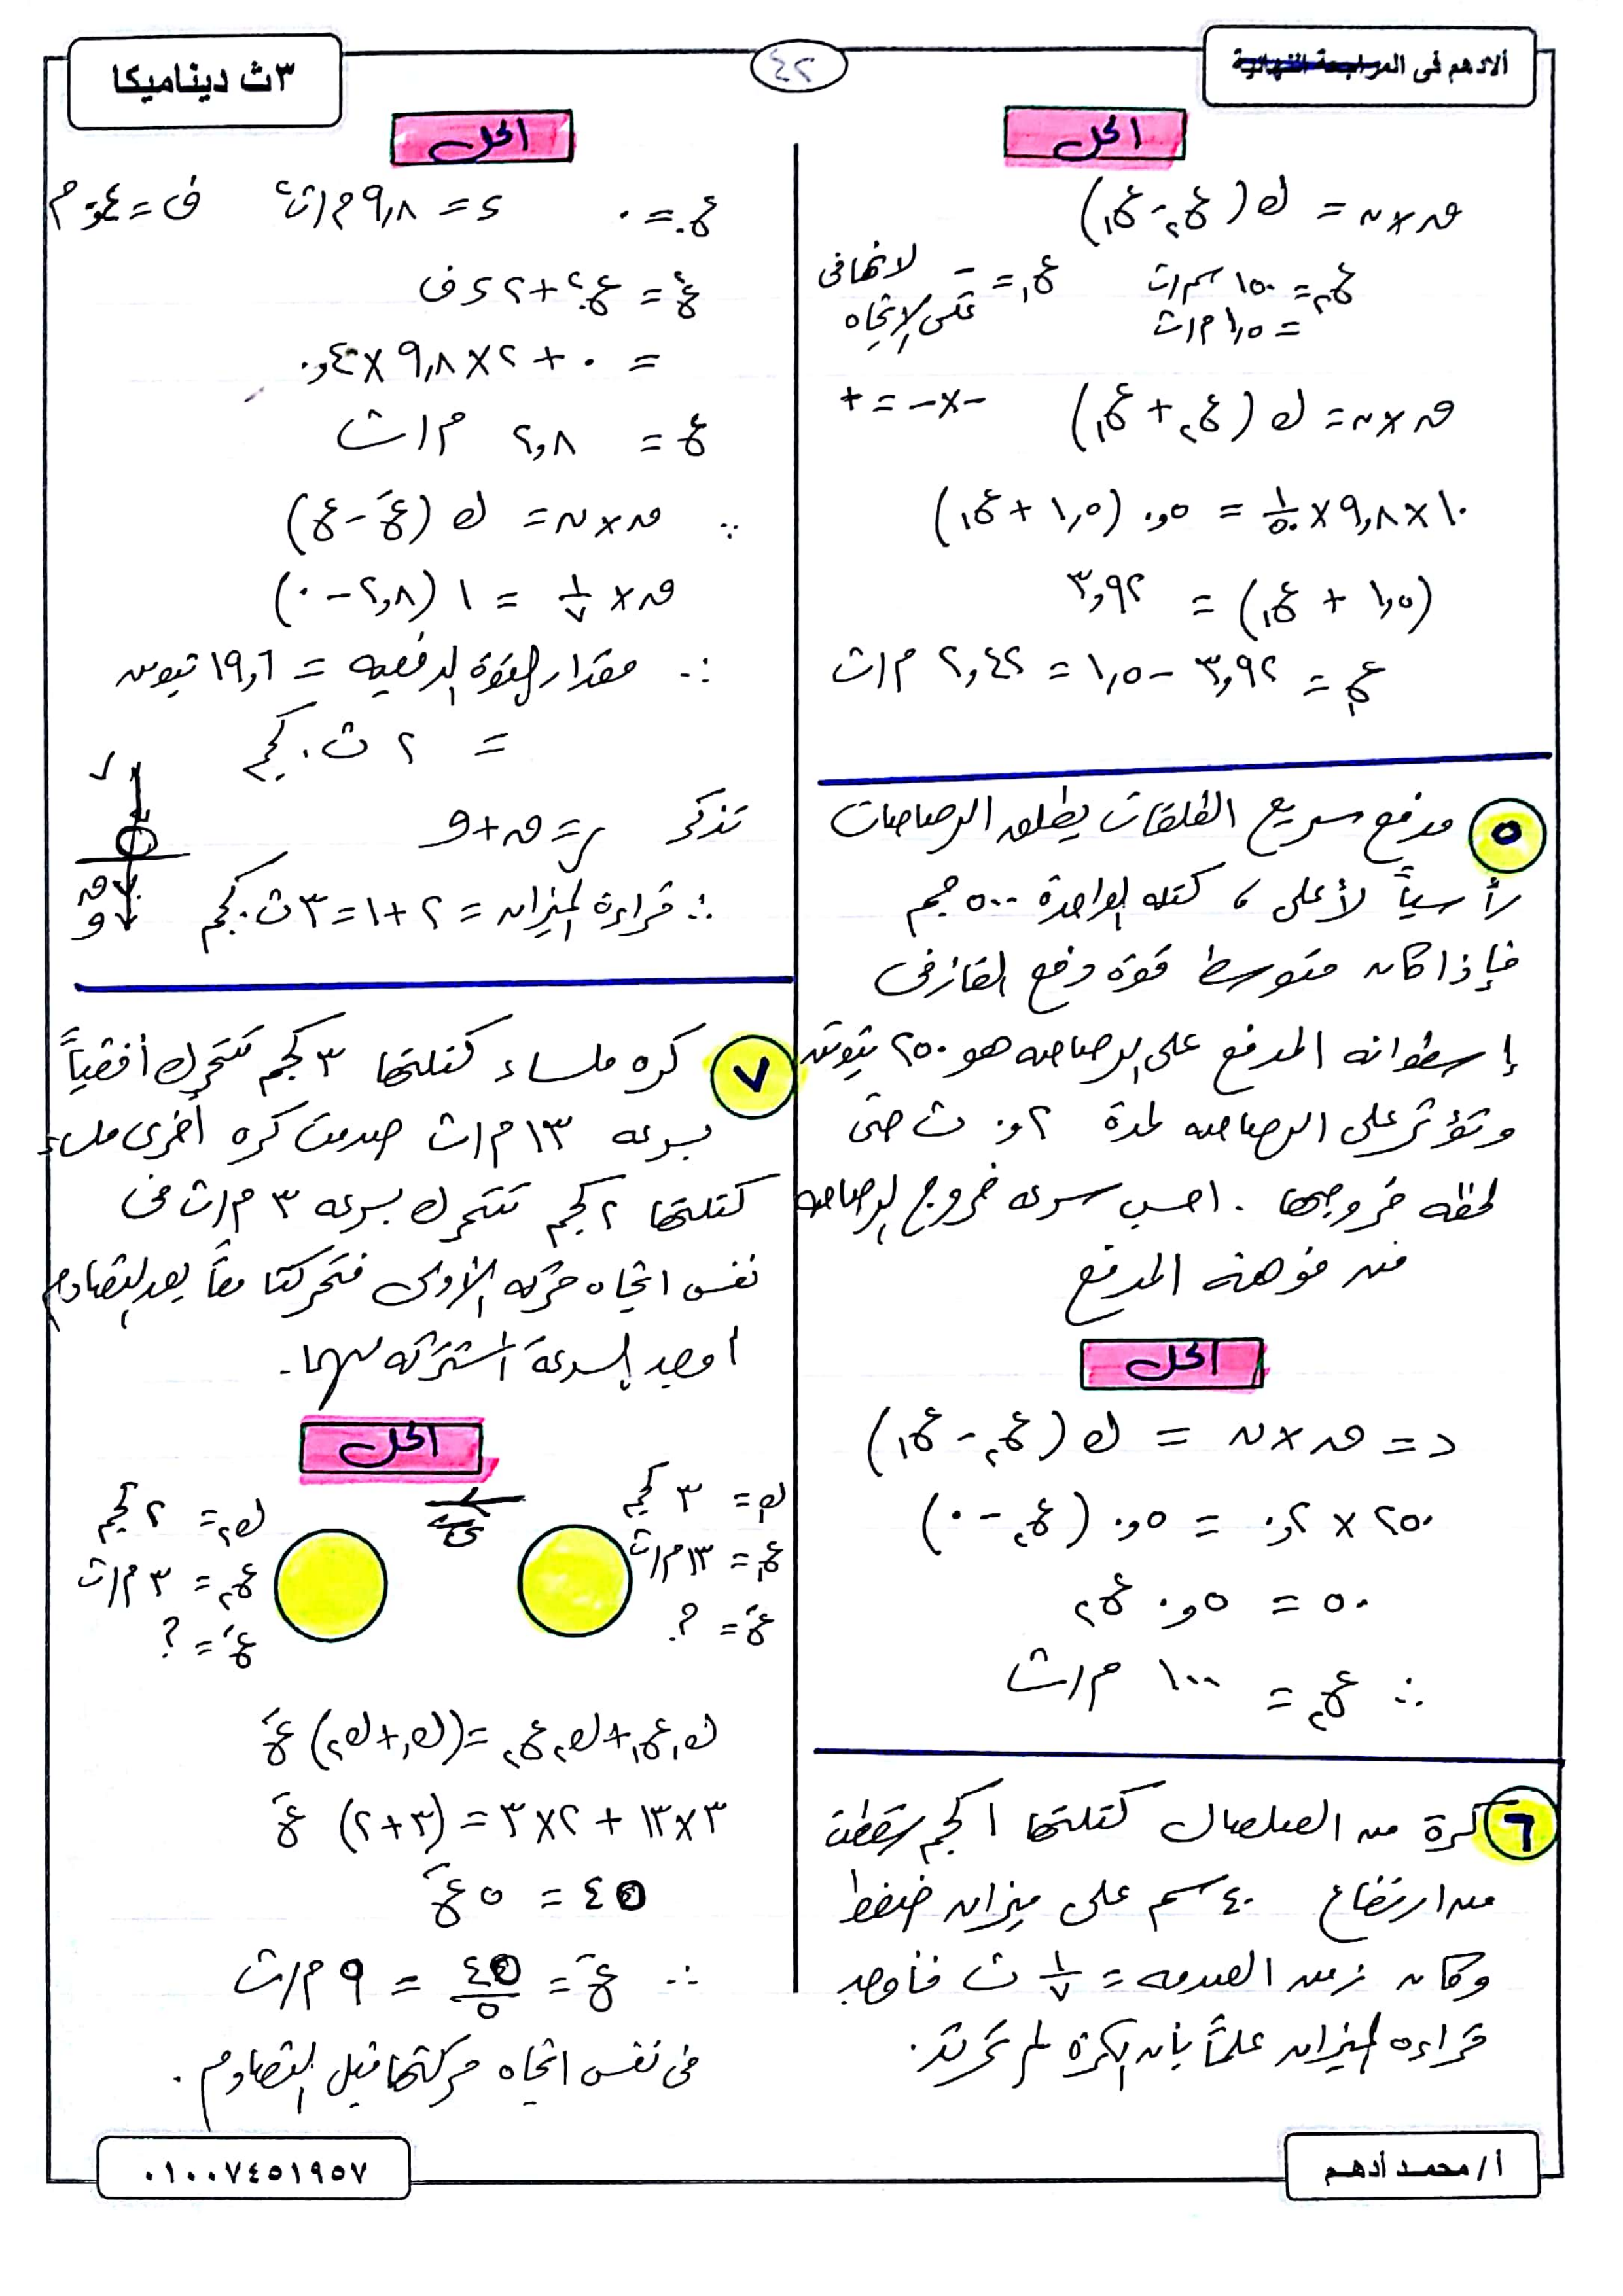 الأدهم فى المراجعة النهائية
٤٢
٣ث ديناميكا
الحل
ق × ن = ك (ع٢ - ع١)
ع٢ = ١٥٠ سم/ث
= ١٫٥ م/ث
ع١ = - لأنها فى
عكس الإتجاه
ق × ن = ك (ع٢ + ع١) - × - = +
١٠ × ٩٫٨ × ١/٥٠ = ٠٫٥ (١٫٥ + ع١)
(١٫٥ + ع١) = ٣٫٩٢
ع١ = ٣٫٩٢ - ١٫٥ = ٢٫٤٢ م/ث
٥ مدفع سريع الطلقات يطلق الرصاصات
رأسياً لأعلى ، كتلة الواحدة ٥٠٠ جم
فإذا كان متوسط قوة دفع الغاز فى
إسطوانه المدفع على الرصاصه هو ٢٥٠ نيوتن
وتؤثر على الرصاصه لمدة ٠٫٢ ث حتى
لحظه خروجها . احسب سرعه خروج الرصاصه
من فوهة المدفع
الحل
د = ق × ن = ك (ع٢ - ع١)
٢٥٠ × ٠٫٢ = ٠٫٥ (ع٢ - ٠)
٥٠ = ٠٫٥ ع٢
∴ ع٢ = ١٠٠ م/ث
٦ كرة من الصلصال كتلتها ١ كجم سقطت
من ارتفاع ٤٠ سم على ميزان ضغط
وكان زمن الصدمه = ١/٧ ث فأوجد
قراءه الميزان علماً بأن الكرة لم ترتد .
الحل
ع٠ = ٠ ء = ٩٫٨ م/ث٢ ف = ٠٫٤ م
ع٢ = ع٠٢ + ٢ ء ف
= ٠ + ٢ × ٩٫٨ × ٠٫٤
ع = ٢٫٨ م/ث
∵ ق × ن = ك (عَ - ع)
ق × ١/٧ = ١ (٢٫٨ - ٠)
∴ مقدار القوة الدفعيه = ١٩٫٦ نيوتن
= ٢ ث . كجم
تذكر ر = ق + و
∴ قراءة الميزان = ٢ + ١ = ٣ ث . كجم
ر
ق
و
٧ كره ملساء كتلتها ٣ كجم تتحرك أفقياً
بسرعه ١٣ م/ث صدمت كره أخرى ملساء
كتلتها ٢ كجم تتحرك بسرعه ٣ م/ث فى
نفس اتجاه حركه الأولى فتحركتا معاً بعد التصادم
أوجد السرعة المشتركه لهما .
الحل
ك١ = ٣ كجم
ع١ = ١٣ م/ث
عَ = ؟
ك٢ = ٢ كجم
ع٢ = ٣ م/ث
عَ = ؟
ك١ ع١ + ك٢ ع٢ = (ك١ + ك٢) عَ
٣ × ١٣ + ٢ × ٣ = (٣ + ٢) عَ
٤٥ = ٥ عَ
∴ عَ = ٤٥/٥ = ٩ م/ث
فى نفس اتجاه حركتها قبل التصادم .
أ / محمد أدهم
٠١٠٠٧٤٥١٩٥٧